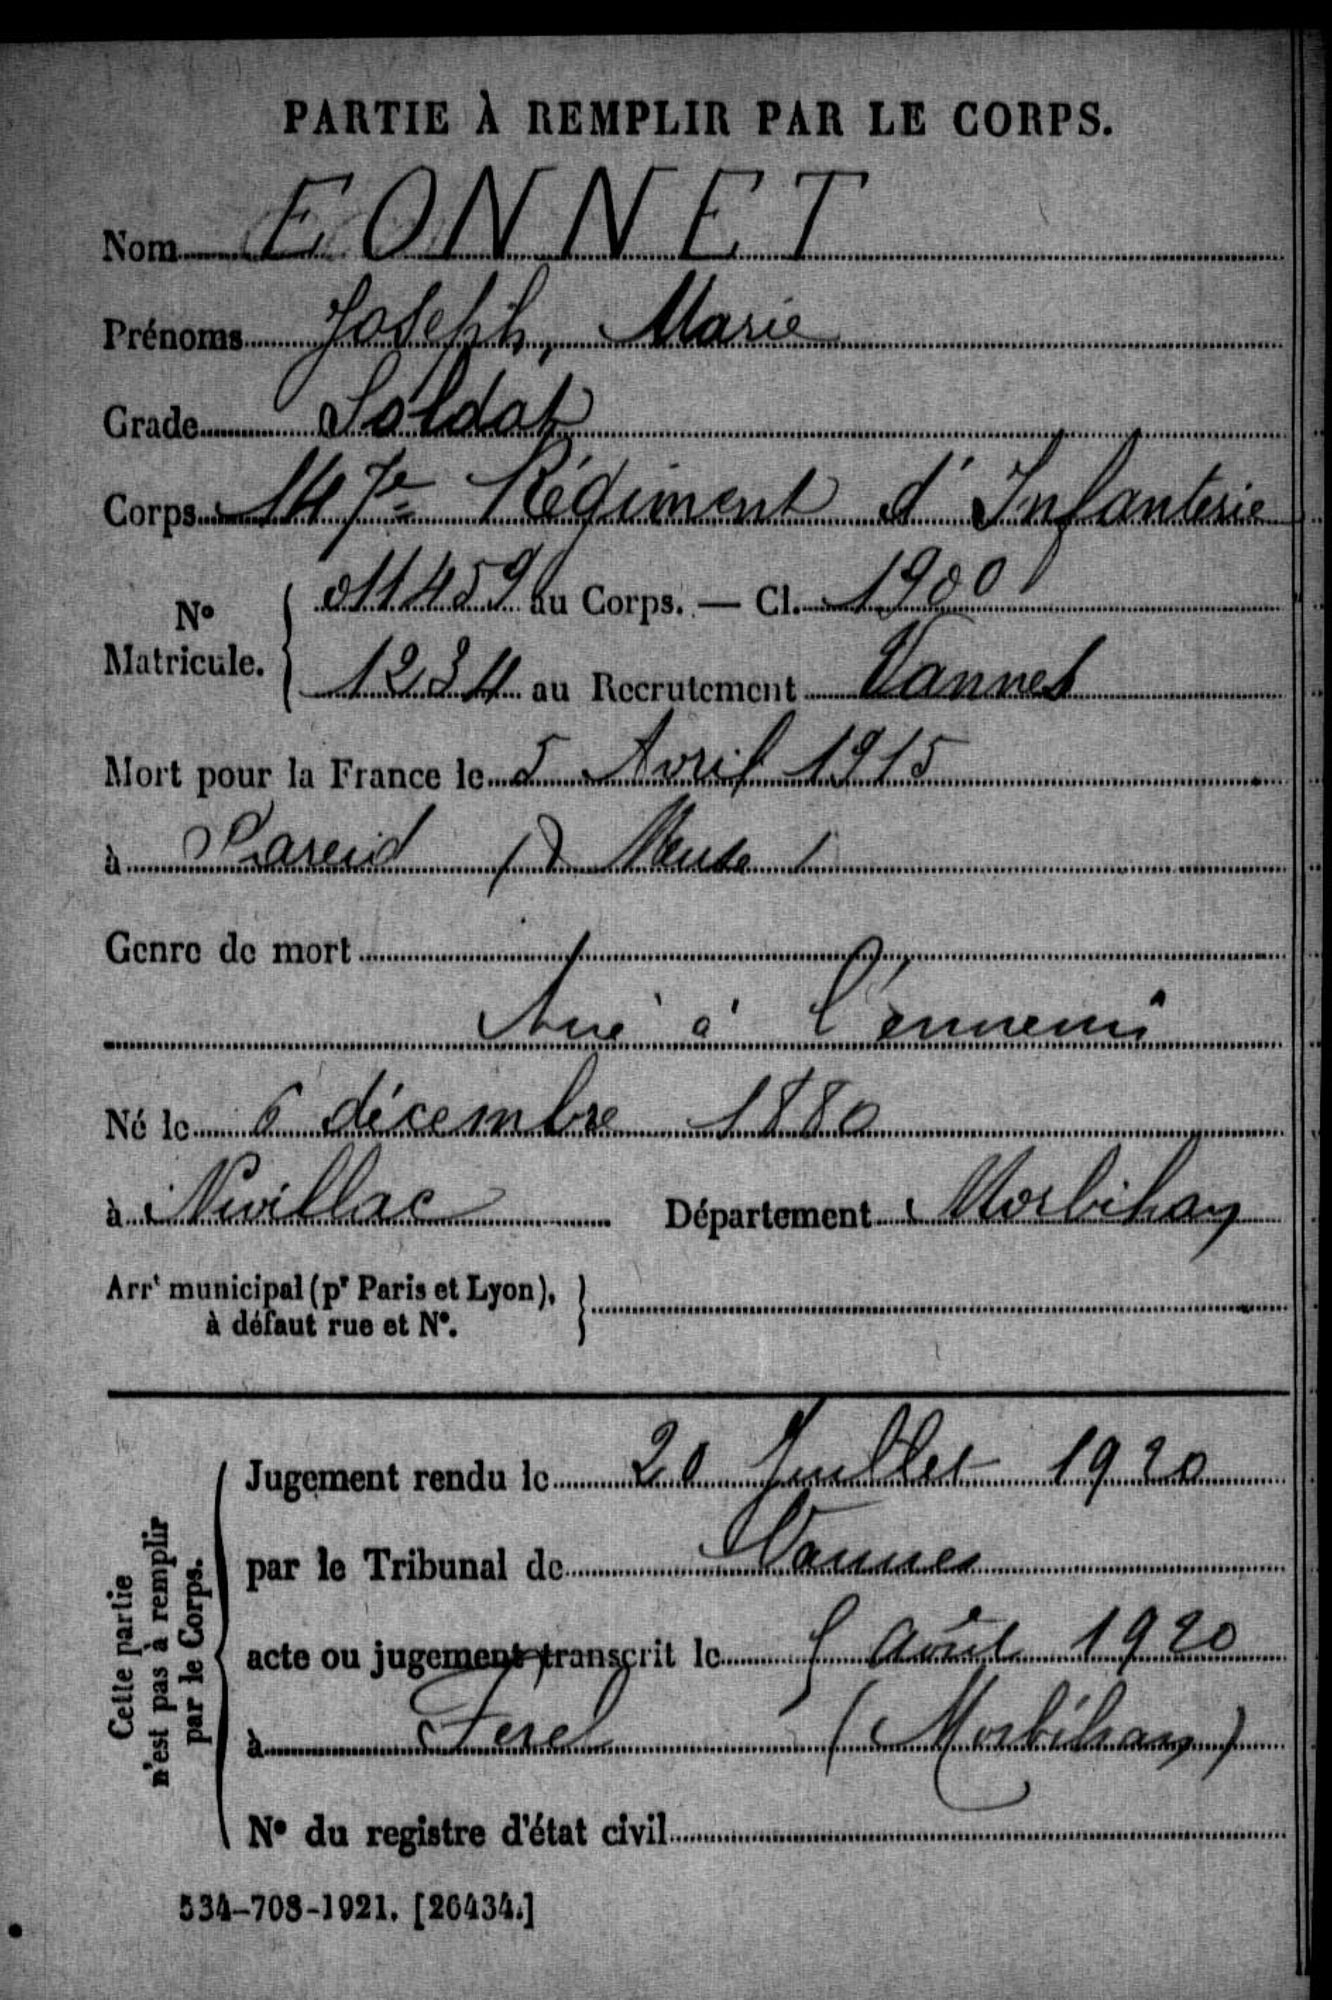 PARTIE À REMPLIR PAR LE CORPS.
Nom EONNET
Prénoms Joseph, Marie
Grade Soldat
Corps 147e Régiment d'Infanterie
No Matricule. { 011459 au Corps. — Cl. 1900
1234 au Recrutement Vannes
Mort pour la France le 5 Avril 1915
à Pareid (Meuse)
Genre de mort
Tué à l'ennemi
Né le 6 décembre 1880
à Nivillac Département Morbihan
Arrt municipal (pr Paris et Lyon),
à défaut rue et No.
Cette partie
n'est pas à remplir
par le Corps.
Jugement rendu le 20 Juillet 1920
par le Tribunal de Vannes
acte ou jugement transcrit le 5 août 1920
à Férel (Morbihan)
No du registre d'état civil
534-708-1921. [26434.]